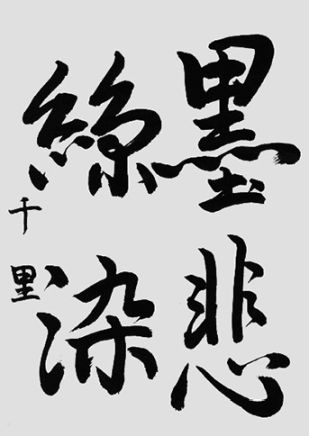 墨悲
絲染
千里